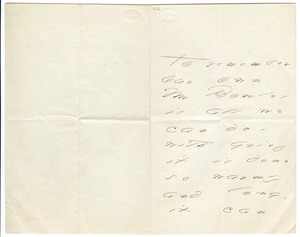 To remember
our own
Mr Bowles
is all we
can do,
with grief
it is done
so warmly
and long,
it can